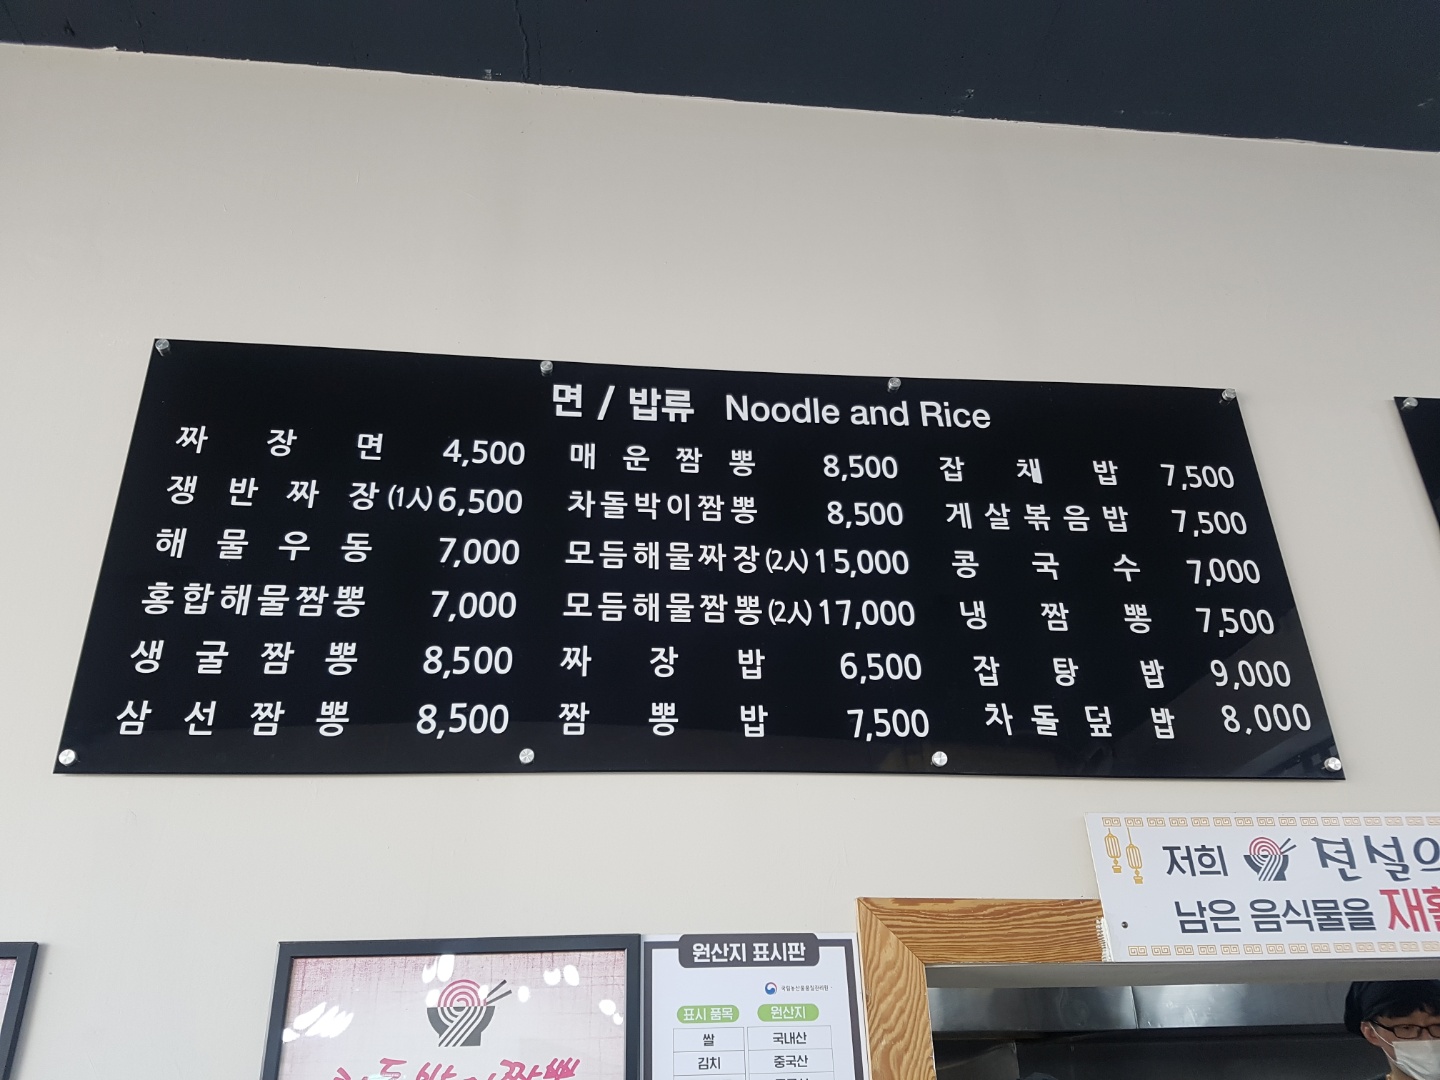 면 / 밥류 Noodle and Rice
짜장면 4,500
쟁반짜장(1人) 6,500
해물우동 7,000
홍합해물짬뽕 7,000
생굴짬뽕 8,500
삼선짬뽕 8,500
매운짬뽕 8,500
차돌박이짬뽕 8,500
모듬해물짜장(2人) 15,000
모듬해물짬뽕(2人) 17,000
짜장밥 6,500
짬뽕밥 7,500
잡채밥 7,500
게살볶음밥 7,500
콩국수 7,000
냉짬뽕 7,500
잡탕밥 9,000
차돌덮밥 8,000
저희 전설의
남은 음식물을
원산지 표시판
국립농산물품질관리원
표시 품목 원산지
쌀 국내산
김치 중국산